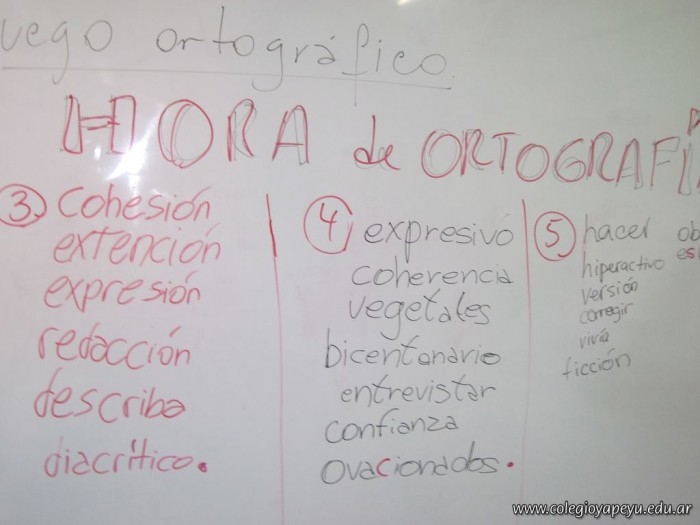 uego ortográfico.
HORA de ORTOGRAFÍA
3 Cohesión
extención
expresión
redacción
describa
diacrítico.
4 expresivo
coherencia
vegetales
bicentenario
entrevistar
confianza
ovacionados.
5 hacer
hiperactivo
versión
corregir
vivía
ficción
ob
es
www.colegioyapeyu.edu.ar